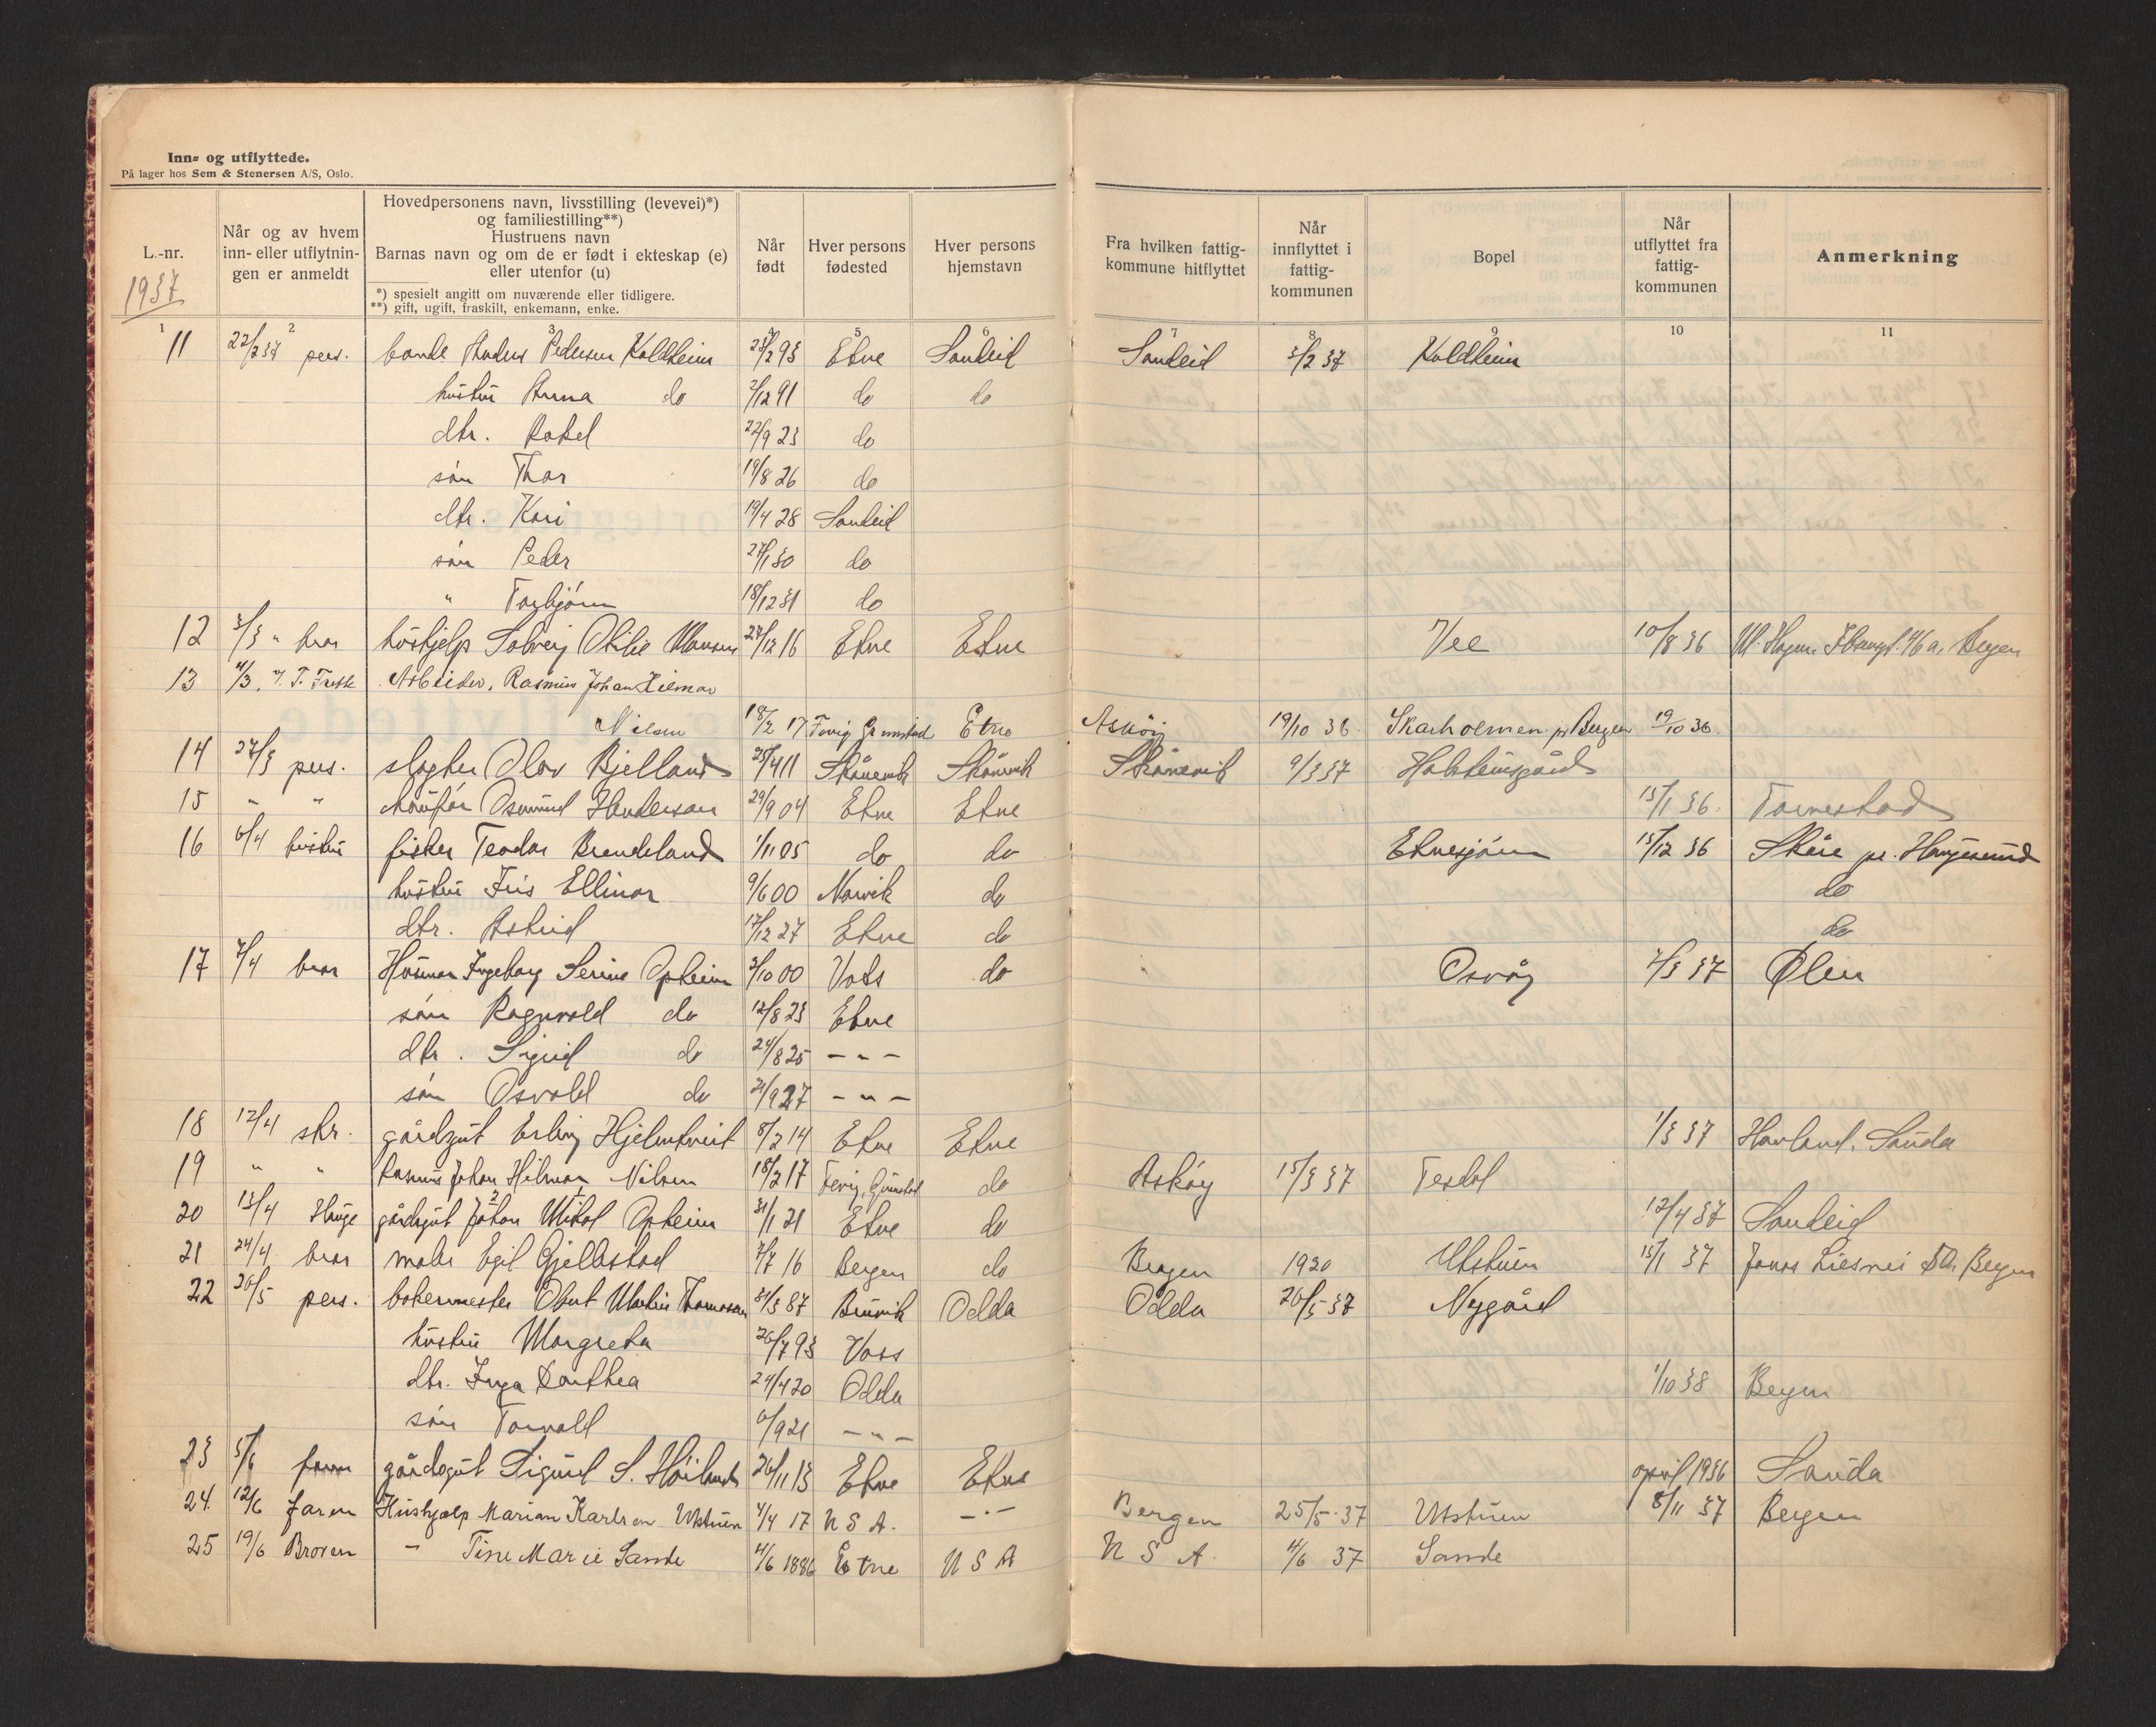 Inn- og utflyttede.
På lager hos Sem & Stenersen A/S, Oslo.
L.-nr.
1937
Når og av hvem inn- eller utflytningen er anmeldt
Hovedpersonens navn, livsstilling (levevei)*) og familiestilling**)
Hustruens navn
Barnas navn og om de er født i ekteskap (e) eller utenfor (u)
*) spesielt angitt om nuværende eller tidligere.
**) gift, ugift, fraskilt, enkemann, enke.
Når født
Hver persons fødested
Hver persons hjemstavn
Fra hvilken fattigkommune hitflyttet
Når innflyttet i fattigkommunen
Bopel
Når utflyttet fra fattigkommunen
Anmerkning
1 2 3 4 5 6 7 8 9 10 11
11 22/2 37 pers. bonde Anders Pedersen Koldheim 23/2 93 Etne Sandeid Sandeid 3/2 37 Koldheim
hustru Anna do 2/12 91 do do
dtr. Rakel 22/9 23 do
sön Thor 19/8 26 do
dtr. Kari 19/4 28 Sandeid
sön Peder 27/1 30 do
" Torbjörn 18/12 31 do
12 3/3 " bror hushjelp Solveig Otilie Hansen 27/12 16 Etne Etne Vee 10/8 36 Bergen
13 4/3 Arbeider, Rasmus Johan Hilmar
Nilsen 18/2 17 Fevig Grimstad Etne Asköy 19/10 36 Skarholmen pr Bergen 19/10 36
14 27/3 pers. slagter Olav Bjelland 25/4 11 Skånevik Skånevik Skånevik 9/3 37 Holsteinsgård
15 " " Osmund Henderson 29/9 04 Etne Etne 15/1 36 Tornestad
16 6/4 hustru fisker Teodor Brendeland 1/11 05 do do Etnesjöen 15/12 36 Skåre pr. Haugesund
hustru Iris Ellinor 9/6 00 Narvik do do
dtr. Astrid 17/12 27 Etne do do
17 7/4 bror Husmor Ingeborg Serine Opheim 2/10 00 Vats do Osvåg 7/3 37 Ølen
sön Ragnvald do 12/8 23 Etne
dtr. Sigrid do 24/8 25 - " -
sön Osvald do 21/9 27 - " -
18 12/4 skr. gårdsgut Erling Hjelmtveit 8/2 14 Etne Etne 1/3 37 Havland, Sauda
19 " " Rasmus Johan Hilmar Nilsen 18/2 17 Fevig, Grimstad do Asköy 15/3 37 Tesdal
20 13/4 Hauge gårdsgut Johan Mikal Opheim 31/1 21 Etne do 12/4 37 Sandeid
21 24/4 bror maler Egil Gjellestad 7/7 16 Bergen do Bergen 1920 Utstuen 15/1 37 Jonas Liesvei Bergen
22 20/5 pers. bakermester Olout Martin Thomassen 31/3 87 Bruvik Odda Odda 20/5 37 Nygård
hustru Margreta 20/7 93 Voss
dtr. Inga Dorthea 24/4 20 Odda 1/10 38 Bergen
sön Torvald 6/9 21 - " -
23 5/6 faren gårdsgut Sigurd S. Höiland 26/11 13 Etne Etne april 1936 Sauda
24. 12/6 faren Hushjælp Marian Karlsen Utstuen 4/4 17 U S A. - " - Bergen 25/5 37 Utstuen 8/11 37 Bergen
25 19/6 Broren - " Tine Marie Sande 4/6 1886 Etne U S A U S A. 4/6 37 Sande